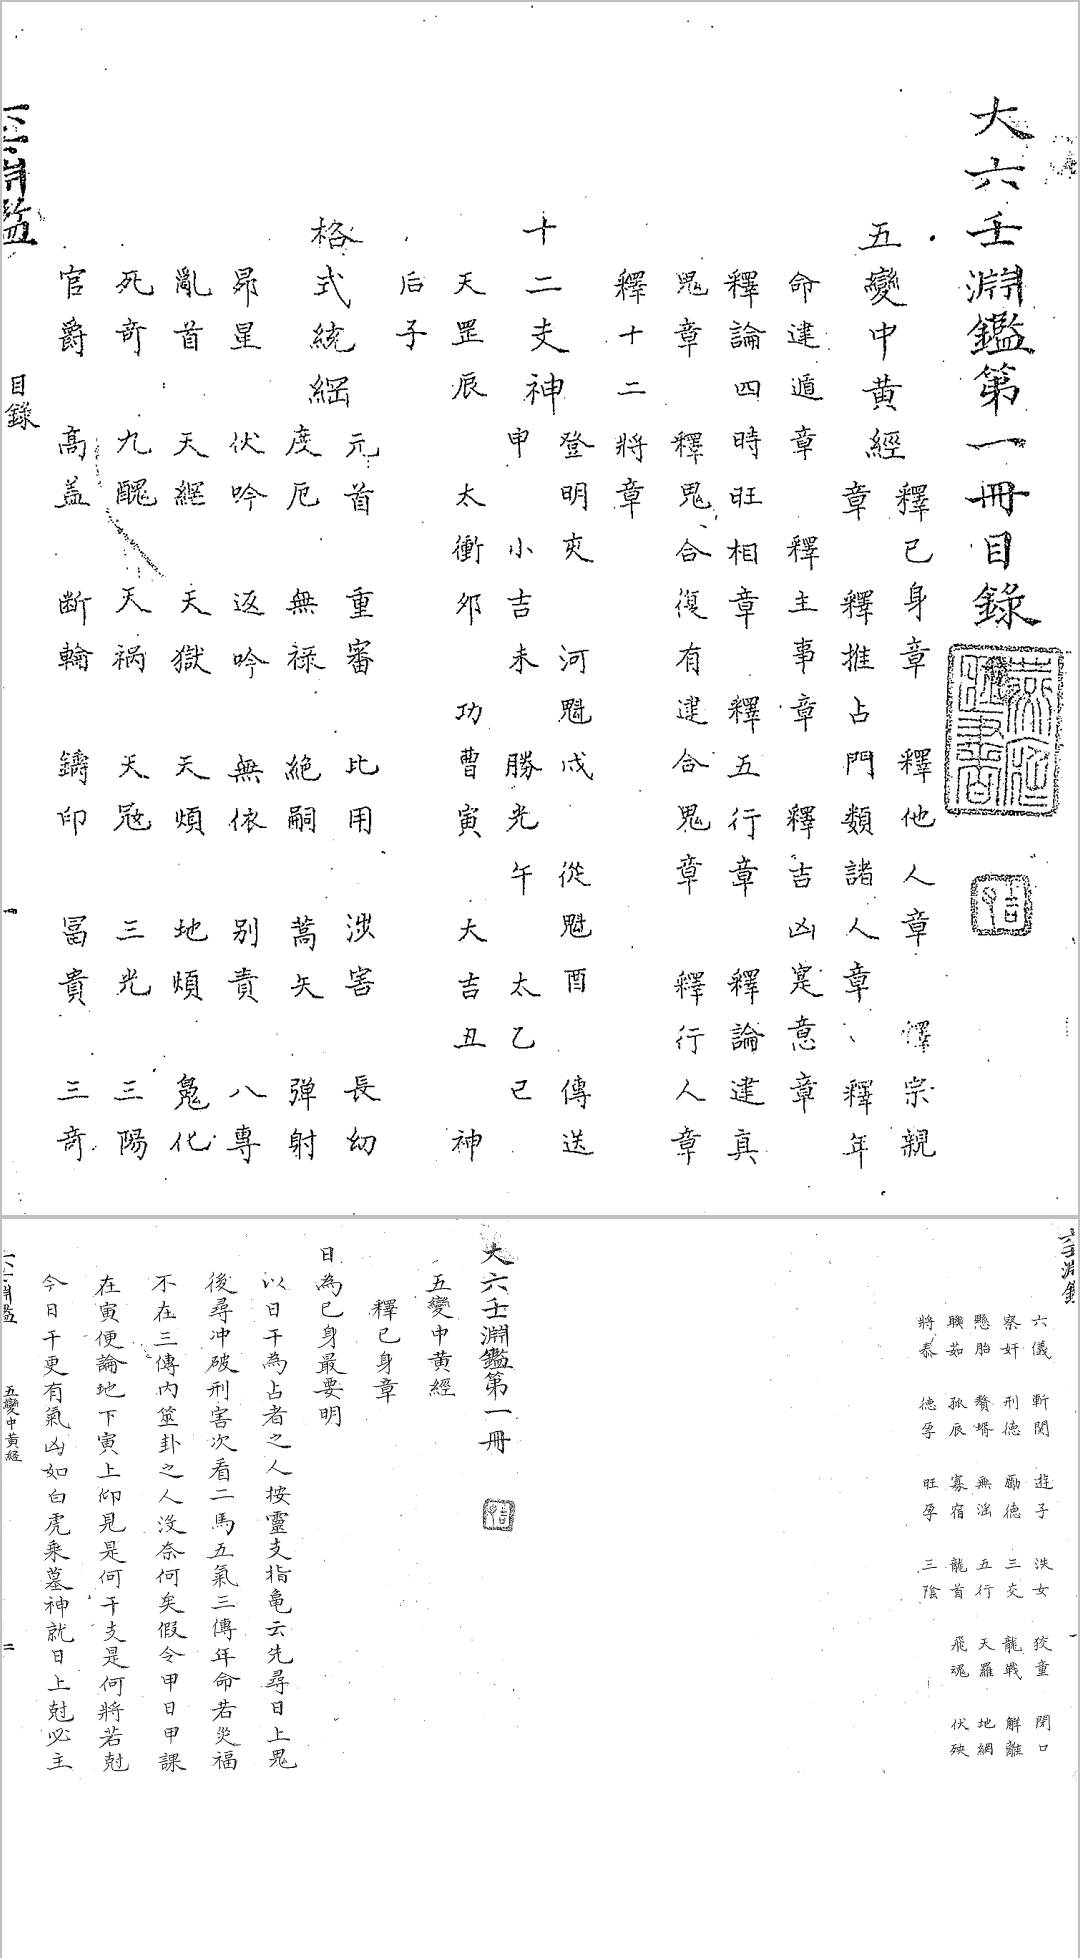 大六壬淵鑑第一冊目錄
五變中黃經
釋己身章　釋他人章　釋宗親
章　釋推占門類諸人章　釋年
命建遁章　釋主事章　釋吉凶寔意章
釋論四時旺相章　釋五行章　釋論建真
鬼章　釋鬼合復有建合鬼章　釋行人章
釋十二將章
十二支神
登明亥　河魁戌　從魁酉　傳送
申　小吉未　勝光午　太乙巳
天罡辰　太衝卯　功曹寅　大吉丑　神
后子
格式統綱
元首　重審　比用　涉害　長幼
度厄　無祿　絕嗣　蒿矢　彈射
昴星　伏吟　返吟　無依　別責　八專
亂首　天網　天獄　天煩　地煩　鬼化
死奇　九醜　天禍　天寇　三光　三陽
官爵　高盖　斷輪　鑄印　冨貴　三奇
六壬淵鑑　目錄　一
六儀　斬関　遊子　泆女　狡童　閉口
察奸　刑德　勵德　三交　龍戰　解離
懸胎　贅壻　無滛　五行　天羅　地網
聯茹　孤辰　寡宿　龍首　飛魂　伏殃
將泰　德孕　旺孕　三陰
大六壬淵鑑第一冊
五變中黃經
釋己身章
日為己身最要明
以日干為占者之人按靈支指亀云先尋日上鬼
後尋冲破刑害次看二馬五氣三傳年命若災福
不在三傳內筮卦之人没奈何矣假令甲日甲課
在寅便論地下寅上仰見是何干支是何將若尅
今日干更有氣凶如白虎乘墓神就日上尅必主
六壬淵鑑　五變中黃経　二